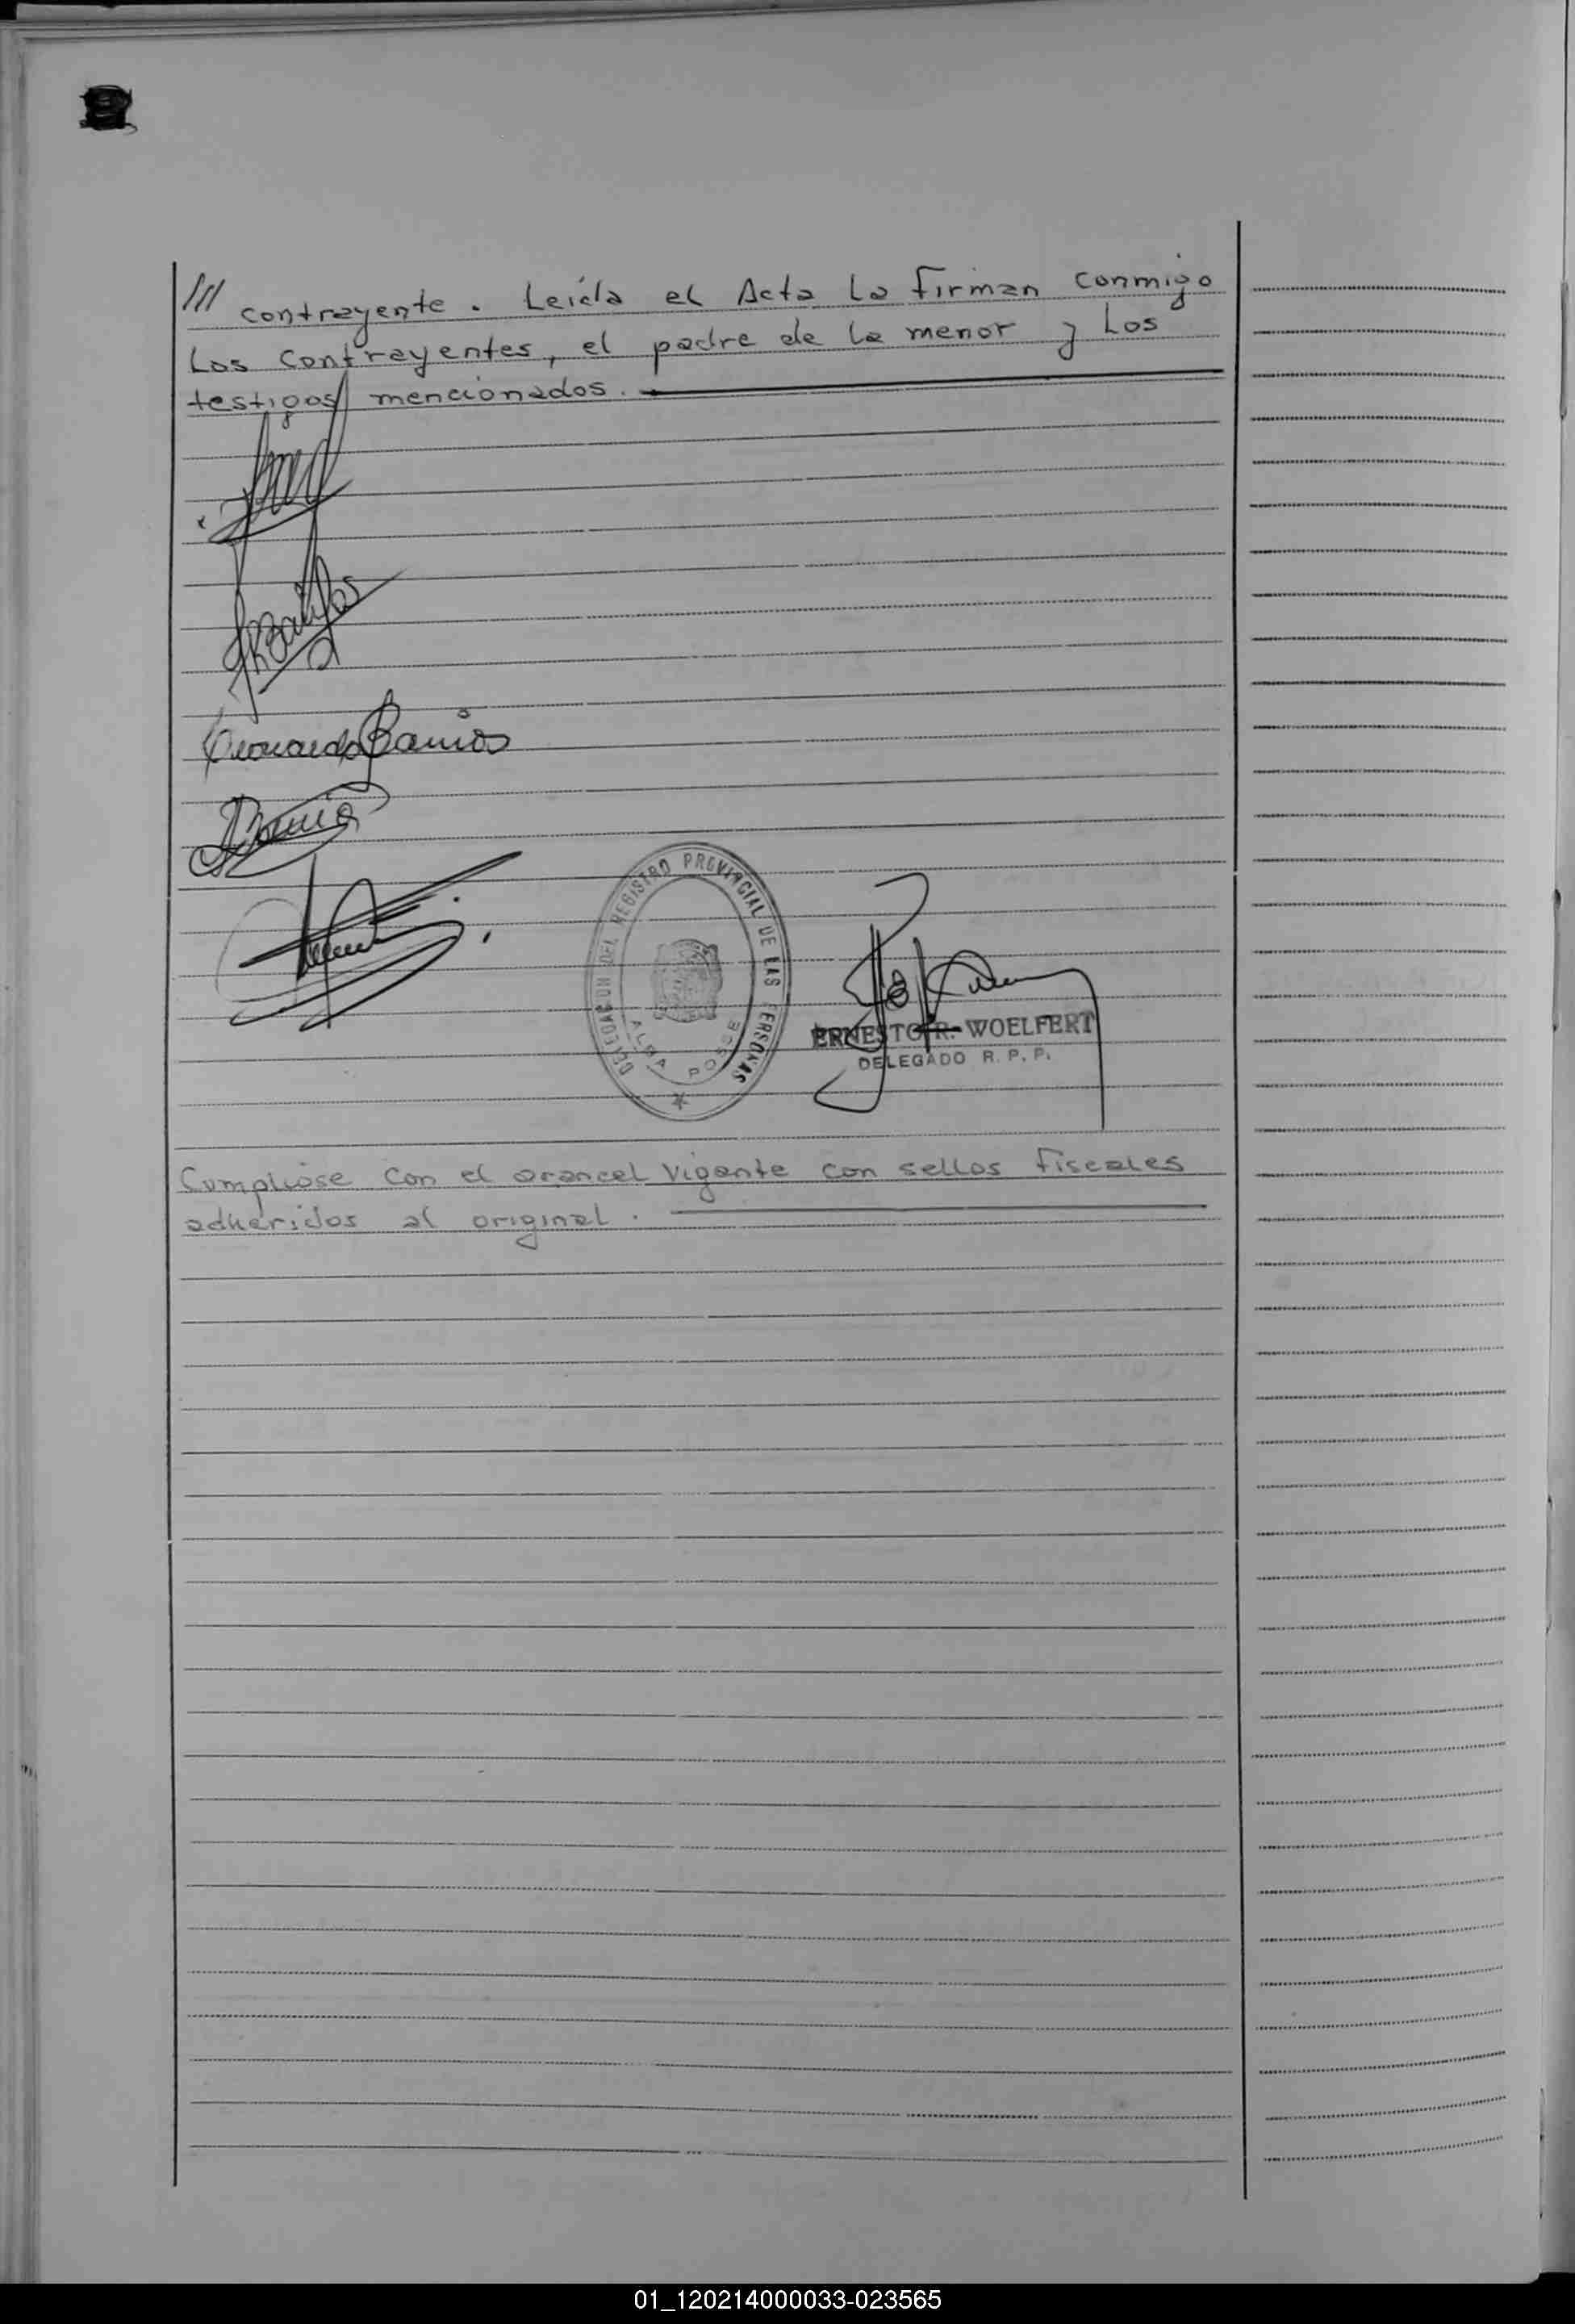 /// contrayente. Leída el Acta la firman conmigo
los contrayentes, el padre de la menor y los
testigos mencionados.
Barrios
DELEGACION DEL REGISTRO PROVINCIAL DE LAS PERSONAS
ALBA POSSE
ERNESTO R. WOELFERT
DELEGADO R. P. P.
Cumplióse con el arancel vigente con sellos fiscales
adheridos al original.
01_120214000033-023565